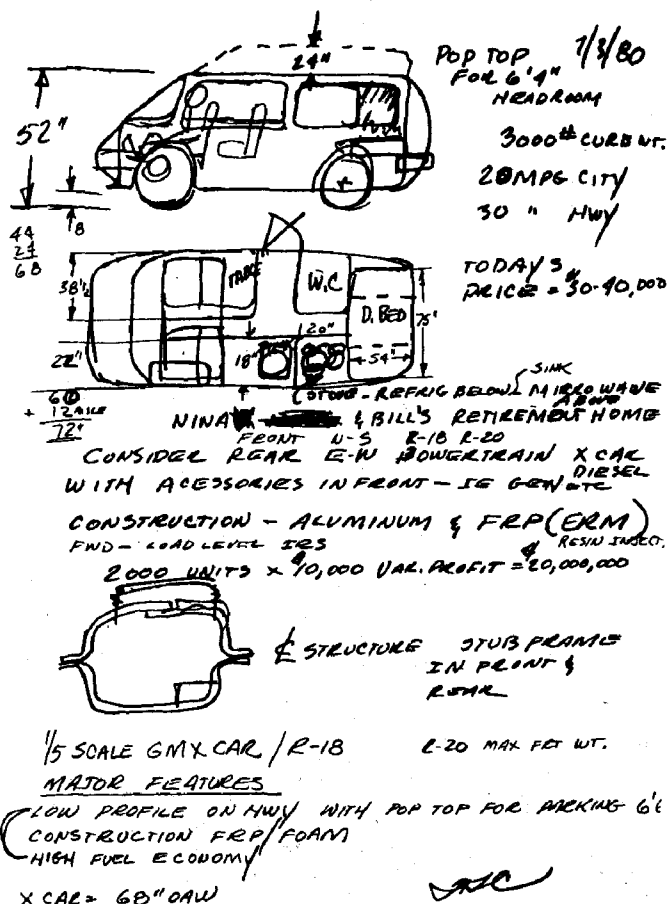 POP TOP 1/3/80
FOR 6'4"
HEADROOM
24"
52"
8
3000# CURB WT.
20 MPG CITY
30 " HWY
44
24
68
TODAY'S
PRICE = 30-40,000
38 1/2
TABLE
W.C
D. BED
75"
20"
18"
54"
22"
60
+ 12 AISLE
72"
STOVE - REFRIG BELOW SINK MICROWAVE
ABOVE
NINA & BILL'S RETIREMENT HOME
FRONT N-S R-18 R-20
CONSIDER REAR E-W POWERTRAIN X CAR
DIESEL
WITH ACESSORIES IN FRONT - IE GEN ETC
CONSTRUCTION - ALUMINUM & FRP (ERM)
FWD - LOAD LEVEL IRS RESIN INJECT.
2000 UNITS x $10,000 VAR. PROFIT = $20,000,000
℄ STRUCTURE STUB FRAME
IN FRONT &
REAR
1/5 SCALE GM X CAR / R-18 R-20 MAX FRT WT.
MAJOR FEATURES
LOW PROFILE ON HWY WITH POP TOP FOR PARKING
CONSTRUCTION FRP/FOAM
HIGH FUEL ECONOMY
X CAR = 68" OAW